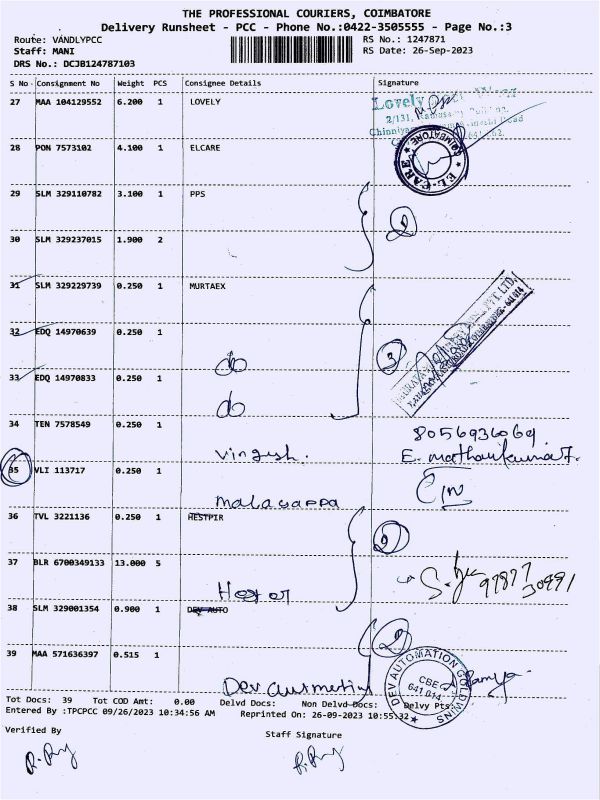 THE PROFESSIONAL COURIERS, COIMBATORE
Delivery Runsheet - PCC - Phone No.:0422-3505555 - Page No.:3
Route: VANDLYPCC RS No.: 1247871
Staff: MANI RS Date: 26-Sep-2023
DRS No.: DCJB124787103
S No Consignment No Weight PCS Consignee Details Signature
27 MAA 104129552 6.200 1 LOVELY
Lovely
2/131,
28 PON 7573102 4.100 1 ELCARE
COIMBATORE
EL-CARE
29 SLM 329110782 3.100 1 PPS
2
30 SLM 329237015 1.900 2
31 SLM 329229739 0.250 1 MURTAEX
32 EDQ 14970639 0.250 1
do
3
33 EDQ 14970833 0.250 1
do
34 TEN 7578549 0.250 1
8056936069.
35 VLI 113717 0.250 1
36 TVL 3221136 0.250 1 HESTPIR
2
37 BLR 6700349133 13.000 5
38 SLM 329001354 0.900 1 DEV AUTO
2
39 MAA 571636397 0.515 1
DEV AUTOMATION GOLDWINS
CBE
641 014
Tot Docs: 39 Tot COD Amt: 0.00 Delvd Docs: Non Delvd Docs: Delvy Pts:
Entered By :TPCPCC 09/26/2023 10:34:56 AM Reprinted On: 26-09-2023 10:55:32
Verified By Staff Signature